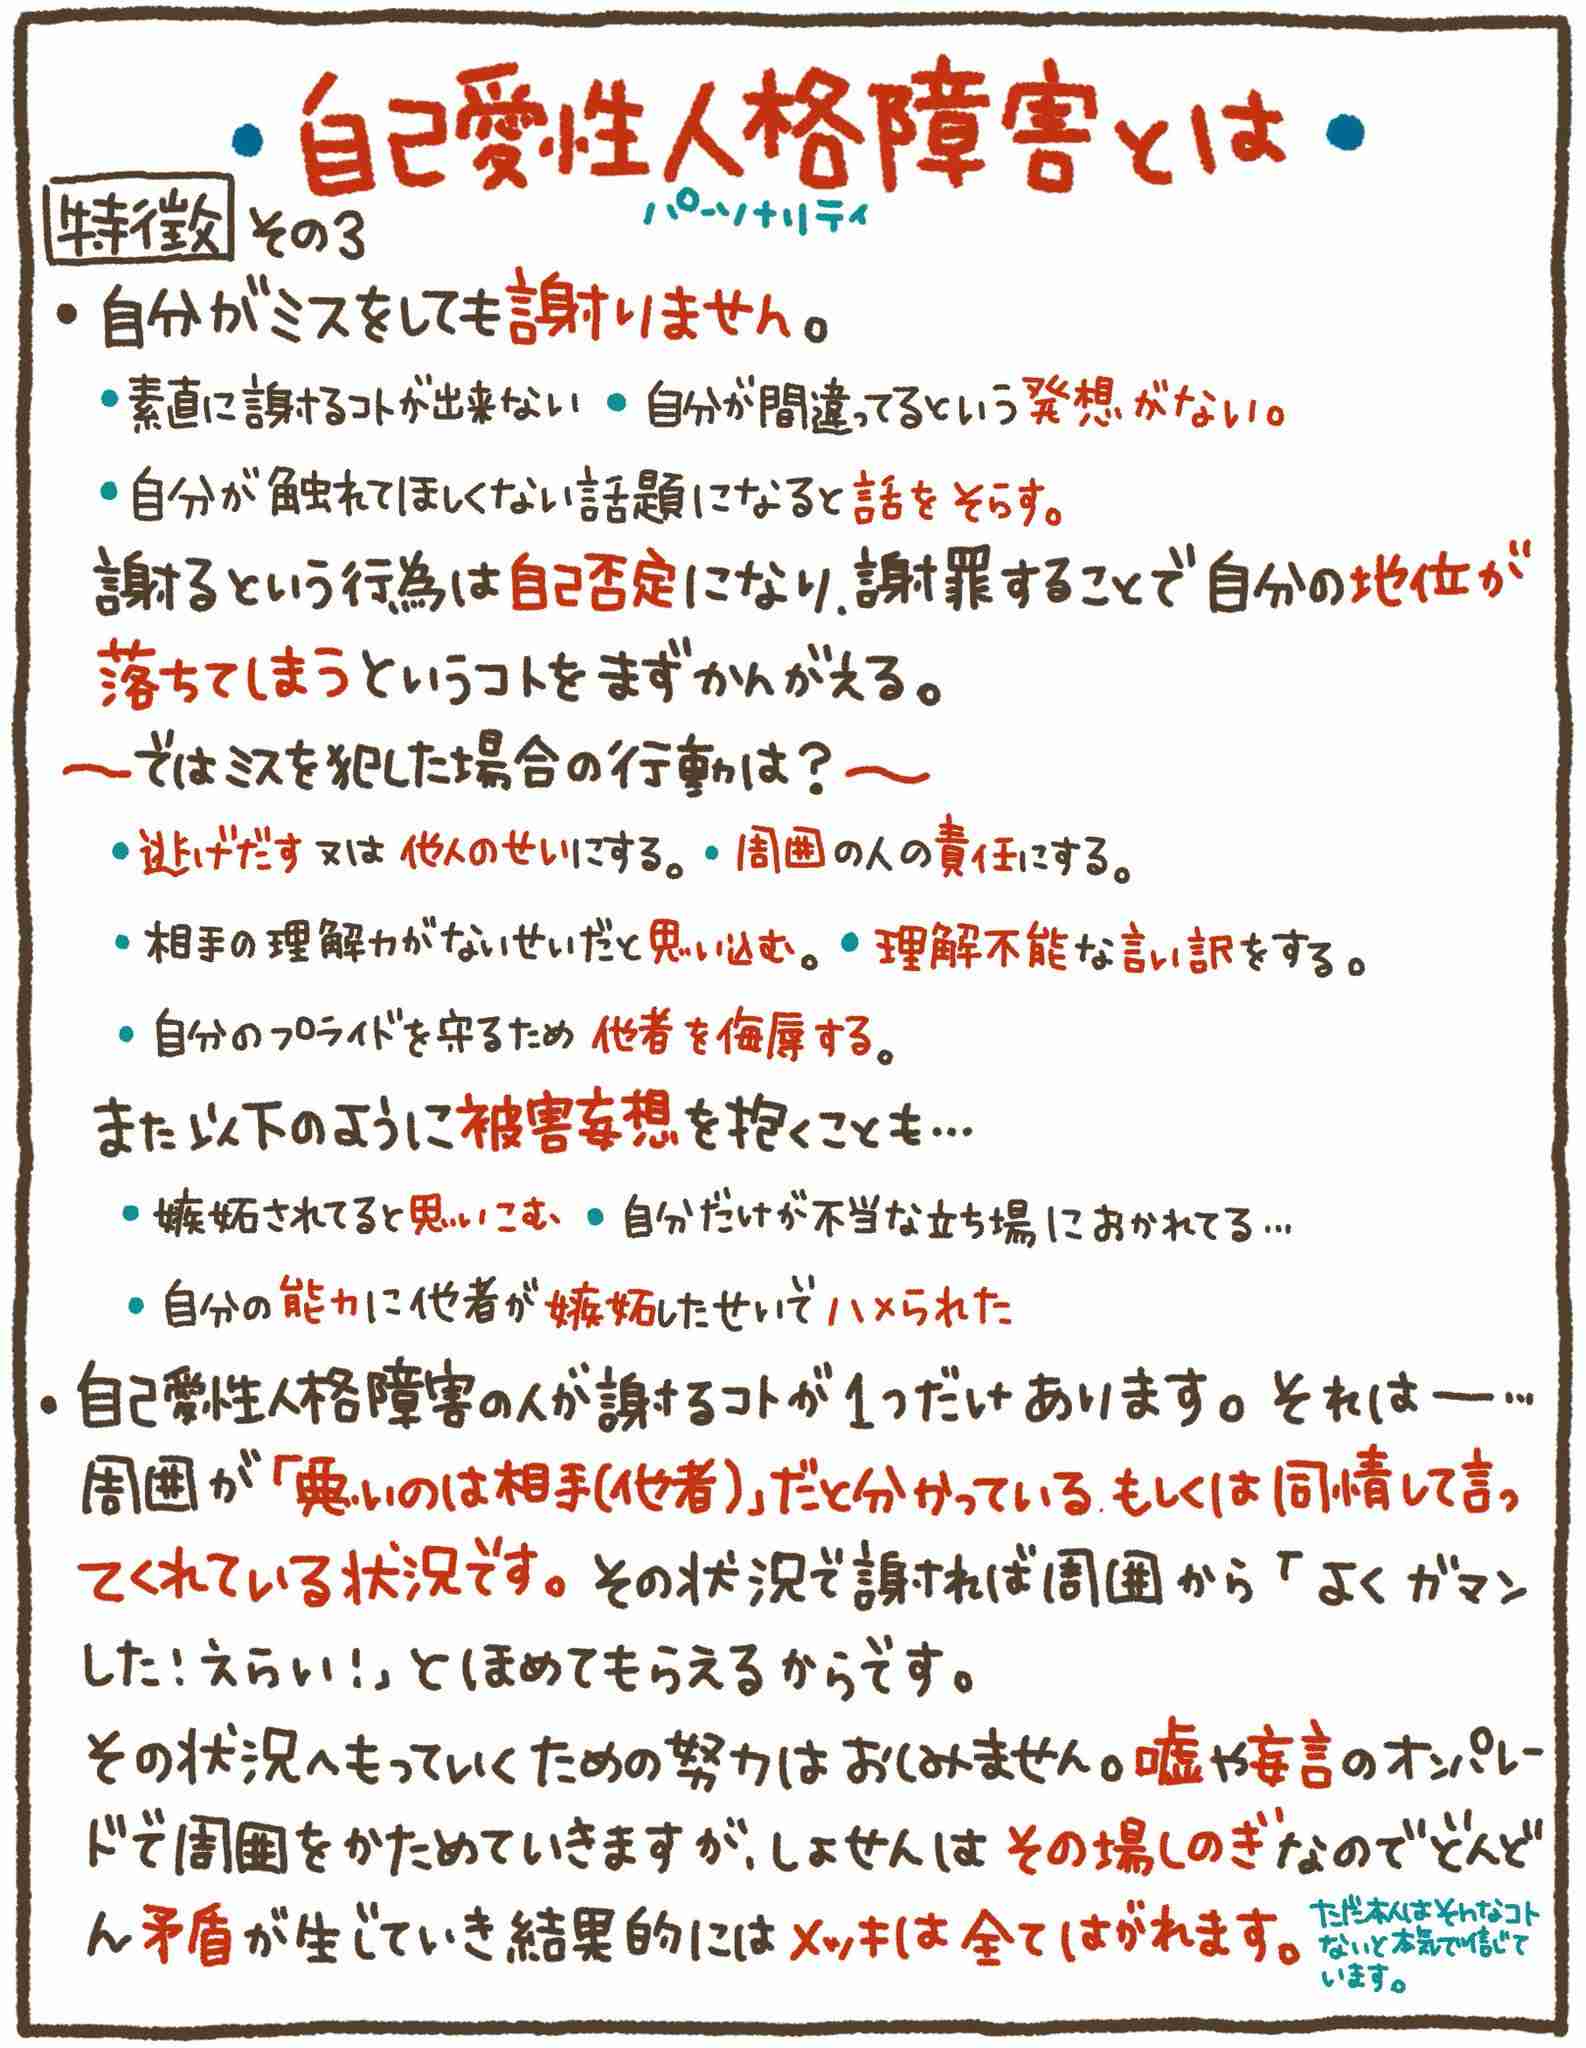 ・自己愛性人格障害とは・
パーソナリティ
特徴 その3
・自分がミスをしても謝りません。
・素直に謝るコトが出来ない ・自分が間違ってるという発想がない。
・自分が触れてほしくない話題になると話をそらす。
謝るという行為は自己否定になり、謝罪することで自分の地位が
落ちてしまうというコトをまずかんがえる。
〜ではミスを犯した場合の行動は?〜
・逃げだす又は他人のせいにする。・周囲の人の責任にする。
・相手の理解力がないせいだと思い込む。・理解不能な言い訳をする。
・自分のプライドを守るため他者を侮辱する。
また以下のように被害妄想を抱くことも…
・嫉妬されてると思いこむ ・自分だけが不当な立ち場におかれてる…
・自分の能力に他者が嫉妬したせいでハメられた
・自己愛性人格障害の人が謝るコトが1つだけあります。それはー…
周囲が「悪いのは相手(他者)」だと分かっている、もしくは同情して言っ
てくれている状況です。その状況で謝れば周囲から「よくガマン
した!えらい!」とほめてもらえるからです。
その状況へもっていくための努力はおしみません。嘘や妄言のオンパレー
ドで周囲をかためていきますが、しょせんはその場しのぎなのでどんど
ん矛盾が生じていき結果的にはメッキは全てはがれます。
ただ本人はそんなコト
ないと本気で信じて
います。